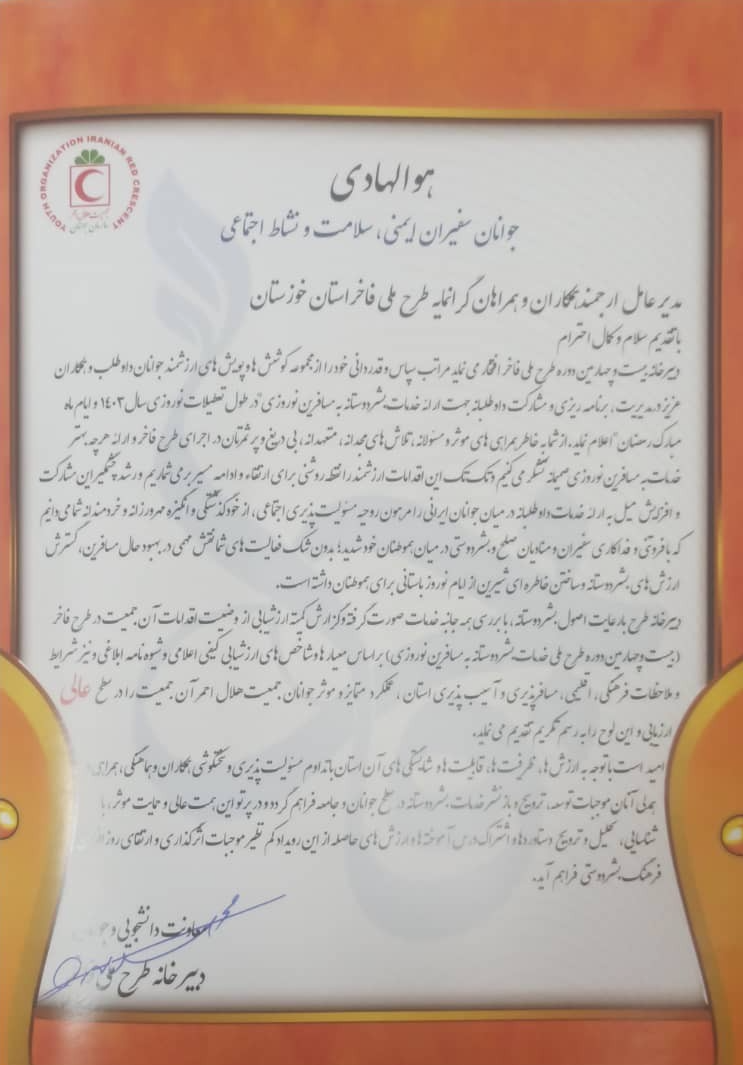 YOUTH ORGANIZATION IRANIAN RED CRESCENT
هوالهادی
جوانان سفیران ایمنی، سلامت و نشاط اجتماعی
مدیر عامل ارجمند، همکاران و همراهان گرانمایه طرح ملی فاخر استان خوزستان
با تقدیم سلام و کمال احترام
دبیرخانه بیست و چهارمین دوره طرح ملی فاخر افتخار می نماید مراتب سپاس و قدردانی خود را از مجموعه کوشش ها و پویش های ارزشمند جوانان داوطلب و همکاران
عزیز در مدیریت، برنامه ریزی و مشارکت داوطلبانه جهت ارائه خدمات بشردوستانه به مسافرین نوروزی "در طول تعطیلات نوروزی سال ۱۴۰۳ و ایام ماه
مبارک رمضان" اعلام نماید. از شما به خاطر همراهی های موثر و مسئولانه، تلاش های مجدانه، متعهدانه، بی دریغ و پر ثمرتان در اجرای طرح فاخر و ارائه هر چه بهتر
خدمات به مسافرین نوروزی صمیمانه تشکر می کنیم و تک تک این اقدامات ارزشمند را نقطه روشنی برای ارتقاء و ادامه مسیر بر می شماریم و رشد چشمگیر این مشارکت
و افزایش میل به ارائه خدمات داوطلبانه در میان جوانان ایرانی را مرهون روحیه مسئولیت پذیری اجتماعی، از خودگذشتگی و انگیزه مهرورزانه و خردمندانه شما می دانیم
که با فروتنی و فداکاری سفیران و منادیان صلح و بشردوستی در میان هموطنان خود شدید؛ بدون شک فعالیت های شما نقش مهمی در بهبود حال مسافرین، گسترش
ارزش های بشردوستانه و ساختن خاطره ای شیرین از ایام نوروز باستانی برای هموطنان داشته است.
دبیرخانه طرح با رعایت اصول بشردوستانه، با بررسی همه جانبه خدمات صورت گرفته و گزارش کمیته ارزشیابی از وضعیت اقدامات آن جمعیت در طرح فاخر
(بیست و چهارمین دوره طرح ملی خدمات بشردوستانه به مسافرین نوروزی) بر اساس معیارها و شاخص های ارزشیابی کیفی اعلامی و شیوه نامه ابلاغی و نیز شرایط
و ملاحظات فرهنگی، اقلیمی، مسافرپذیری و آسیب پذیری استان، عملکرد متمایز و موثر جوانان جمعیت هلال احمر آن جمعیت را در سطح عالی
ارزیابی و این لوح را به رسم تکریم تقدیم می نماید.
امید است با توجه به ارزش ها، ظرفیت ها، قابلیت ها و شایستگی های آن استان با تداوم مسئولیت پذیری و سختکوشی همکاران و هماهنگی، همراهی و
همدلی آنان موجبات توسعه، ترویج و باز نشر خدمات بشردوستانه در سطح جوانان و جامعه فراهم گردد و در پرتو این همت عالی و حمایت موثر، با
شناسایی، تحلیل و ترویج دستاوردها و اشتراک درس آموخته ها و ارزش های حاصله از این رویداد کم نظیر موجبات اثرگذاری و ارتقای روز
فرهنگ بشردوستی فراهم آید.
معاونت دانشجویی و
دبیرخانه طرح ملی